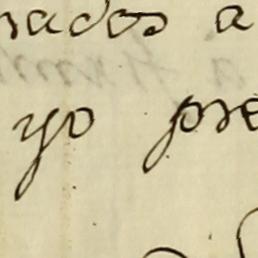 rados a
yo pre